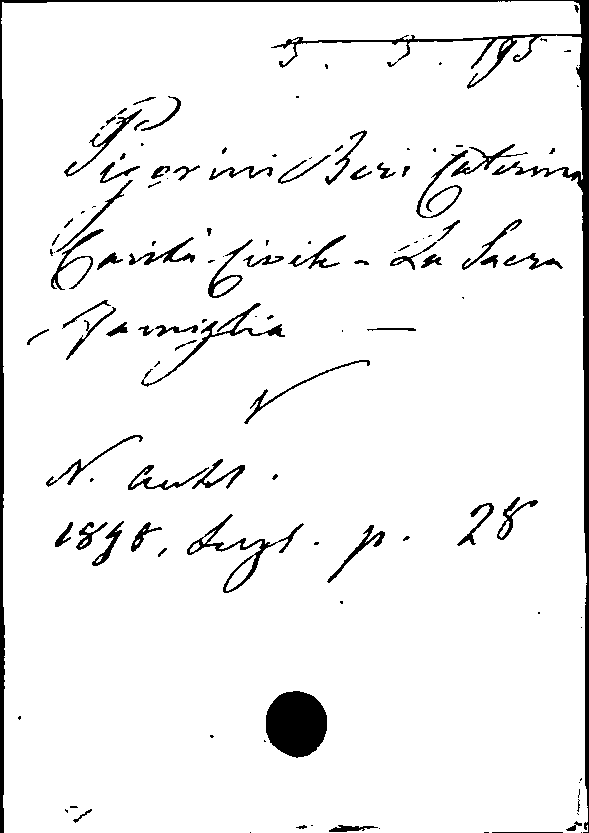 3. 3. 195
Pigorini Beri Caterina
Carità Civile - La Sacra
Famiglia —
N. Antol.
1898, Lugl. p. 28